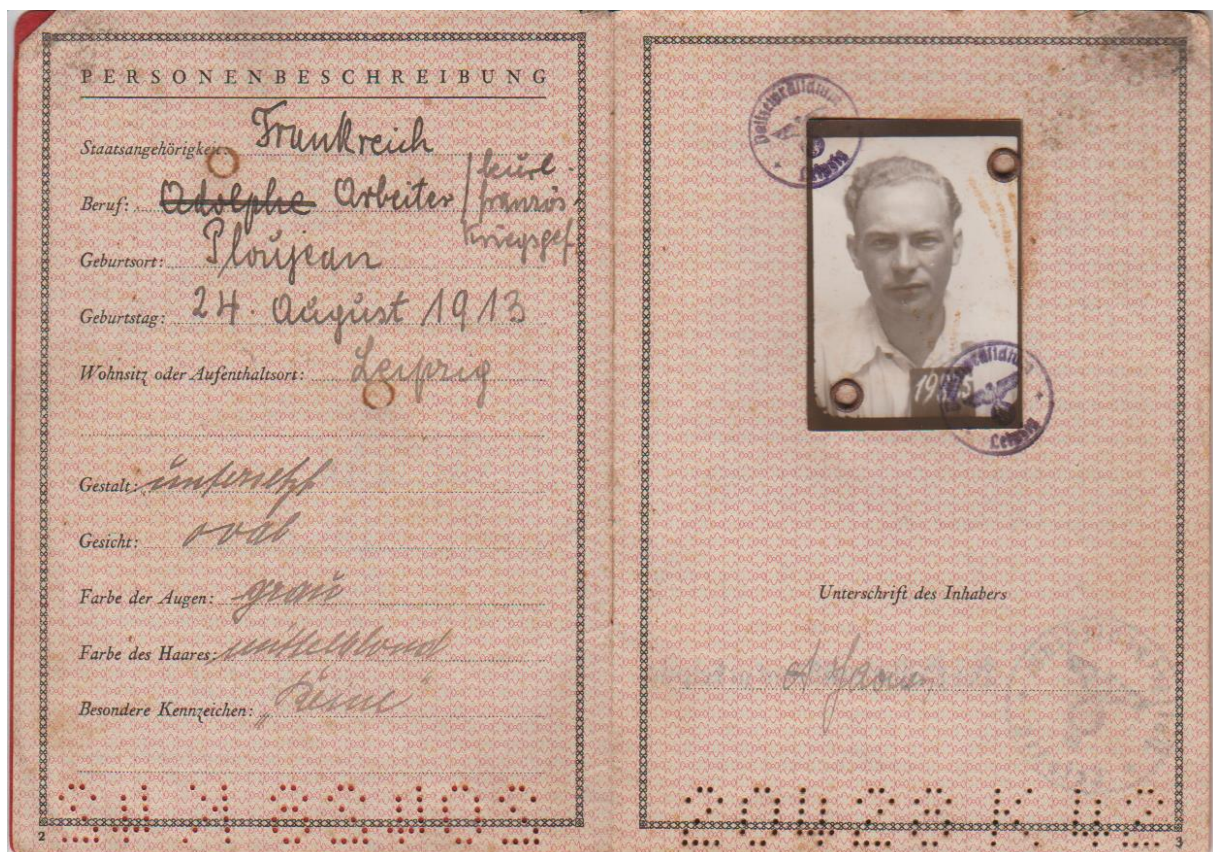 PERSONENBESCHREIBUNG
Staatsangehörigkeit: Frankreich
Beruf: Adolphe Arbeiter / beurl.
französ.
Kriegsgef.
Geburtsort: Ploujean
Geburtstag: 24. August 1913
Wohnsitz oder Aufenthaltsort: Leipzig
Gestalt: untersetzt
Gesicht: oval
Farbe der Augen: grau
Farbe des Haares: mittelblond
Besondere Kennzeichen: „Keine"
2
Polizeipräsidium
Leipzig
Polizeipräsidium
Leipzig
Unterschrift des Inhabers
3